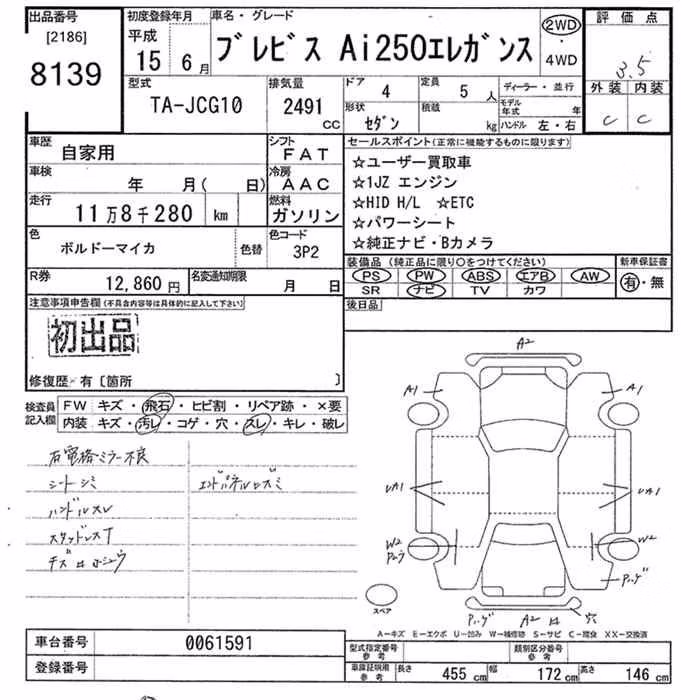 出品番号
[2186]
8139
初度登録年月
平成
15 6月
車名・グレード
ブレビス Ai250エレガンス
2WD
・
4WD
評価点
3.5
外装 内装
C C
型式
TA-JCG10
排気量
2491
CC
ドア 4
定員 5 人
形状 セダン
積載 kg
ディーラー・並行
モデル年式 年
ハンドル 左・右
車歴 自家用
シフト FAT
車検 年 月( 日)
冷房 AAC
走行 11万8千280 km
燃料 ガソリン
色 ボルドーマイカ
色替
色コード 3P2
R券 12,860円
名変通知期限 月 日
セールスポイント(正常に機能するものに限ります)
☆ユーザー買取車
☆1JZ エンジン
☆HID H/L ☆ETC
☆パワーシート
☆純正ナビ・Bカメラ
装備品(純正品に限り○をつけてください)
PS PW ABS エアB AW
SR ナビ TV カワ
新車保証書
有・無
後日品
注意事項申告欄(不具合内容等は具体的に記入して下さい)
初出品
修復歴・有〔箇所 〕
検査員
記入欄
FW キズ・飛石・ヒビ割・リペア跡・×要
内装 キズ・汚レ・コゲ・穴・スレ・キレ・破レ
右電格ミラー不良
シートシミ
ハンドルスレ
スタッドレスT
エンドパネルユズミ
A2
A1 A1
UA1 UA1
W2 W2
A2
穴
スペア
A-キズ E-エクボ U-凹み W-補修跡 S-サビ C-腐食 XX-交換済
車台番号 0061591
登録番号
型式指定番号
参考
類別区分番号
参考
車庫証明用
参考
長さ 455 cm 幅 172 cm 高さ 146 cm